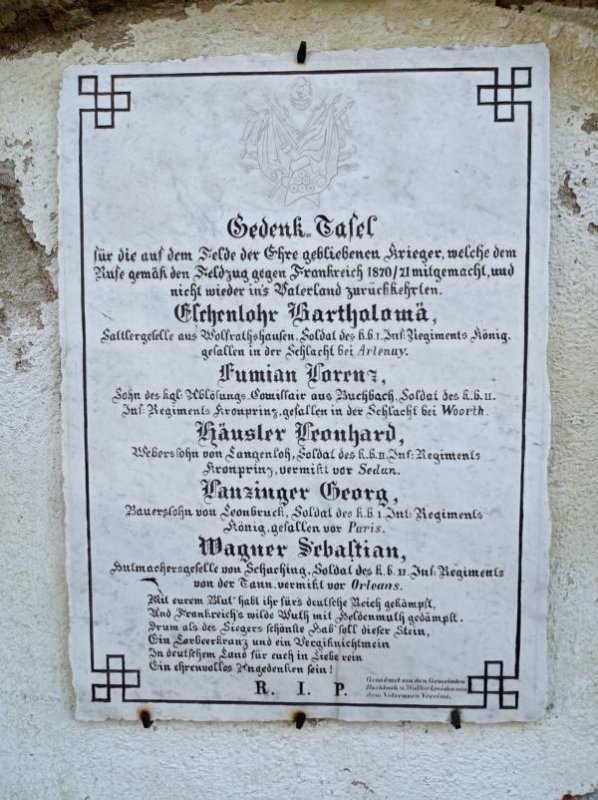 Gedenk-Tafel
für die auf dem Felde der Ehre gebliebenen Krieger, welche dem
Rufe gemäß den Feldzug gegen Frankreich 1870/71 mitgemacht, und
nicht wieder in's Vaterland zurückkehrten.
Eschenlohr Bartholomä,
Sattlergeselle aus Wolfrathshausen, Soldat des k.b.1. Inf: Regiments König.
gefallen in der Schlacht bei Artenay.
Fumian Lorenz,
Sohn des kgl. Ablösungs-Comissair aus Buchbach, Soldat des k.b.11.
Inf: Regiments Kronprinz, gefallen in der Schlacht bei Woerth.
Häusler Leonhard,
Weberssohn von Langenloh, Soldat des k.b.11. Inf: Regiments
Kronprinz, vermißt vor Sedan.
Lanzinger Georg,
Bauerssohn von Leonbruck, Soldat des k.b.1. Inf: Regiments
König, gefallen vor Paris.
Wagner Sebastian,
Hutmachersgeselle von Schaching, Soldat des k.b. Inf: Regiments
von der Tann, vermißt vor Orleans.
Mit eurem Blut' habt ihr für's deutsche Reich gekämpft,
Und Frankreich's wilde Wuth mit Heldenmuth gedämpft.
Drum als des Siegers schönste Hab' soll dieser Stein,
Ein Lorbeerkranz und ein Vergißnichtmein
In deutschem Land für euch in Liebe rein
Ein ehrenvolles Angedenken sein!
R. I. P.
Gewidmet von den Gemeinden
Buchbach u.
dem Veteranen Vereine.